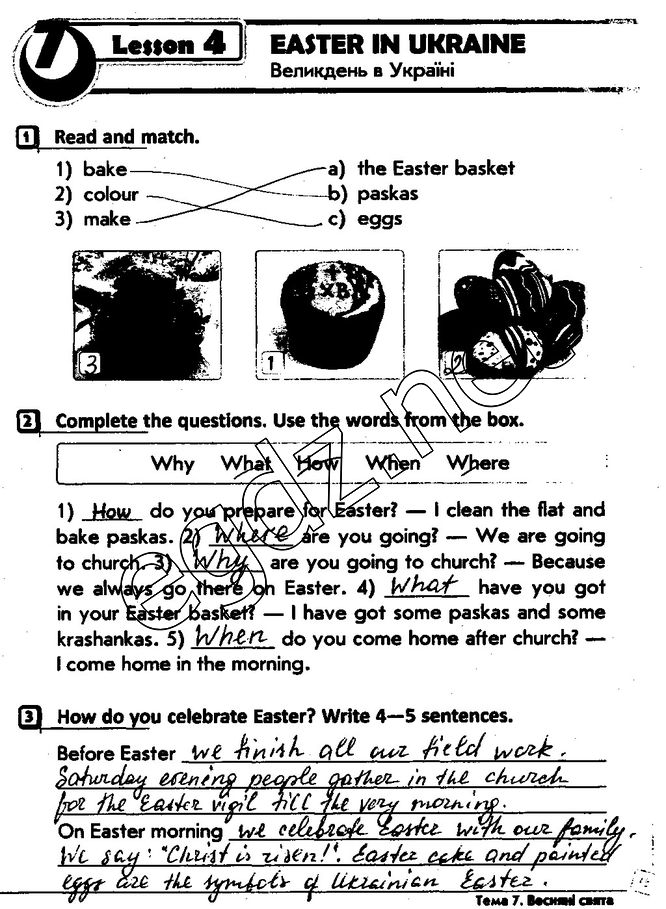 7 Lesson 4 EASTER IN UKRAINE
Великдень в Україні
1 Read and match.
1) bake a) the Easter basket
2) colour b) paskas
3) make c) eggs
ХВ
3 1 2
2 Complete the questions. Use the words from the box.
Why What How When Where
1) How do you prepare for Easter? — I clean the flat and
bake paskas. 2) Where are you going? — We are going
to church. 3) Why are you going to church? — Because
we always go there on Easter. 4) What have you got
in your Easter basket? — I have got some paskas and some
krashankas. 5) When do you come home after church? —
I come home in the morning.
3 How do you celebrate Easter? Write 4—5 sentences.
Before Easter we finish all our field work.
Saturday evening people gather in the church
for the Easter vigil till the very morning.
On Easter morning we celebrate Easter with our family.
We say: "Christ is risen!". Easter cake and painted
eggs are the symbols of Ukrainian Easter.
Тема 7. Весняні свята